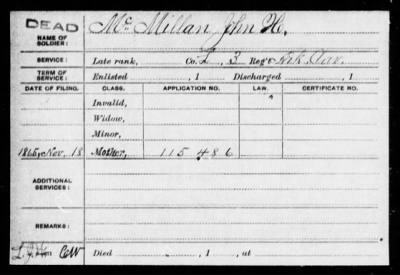 DEAD
NAME OF SOLDIER: McMillan, John H.
SERVICE: Late rank, Co. L, 3 Reg't Ark. Cav.
TERM OF SERVICE: Enlisted , 1 Discharged , 1
DATE OF FILING. CLASS. APPLICATION NO. LAW. CERTIFICATE NO.
Invalid,
Widow,
Minor,
1865, Nov. 18 Mother, 115 486
ADDITIONAL SERVICES:
REMARKS:
Died , 1 , at